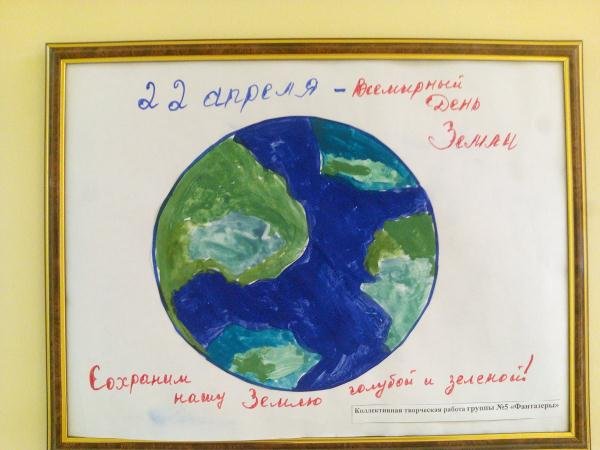 22 апреля - Всемирный
День
Земли
Сохраним
нашу Землю голубой и зеленой!
Коллективная творческая работа группы №5 «Фантазеры»